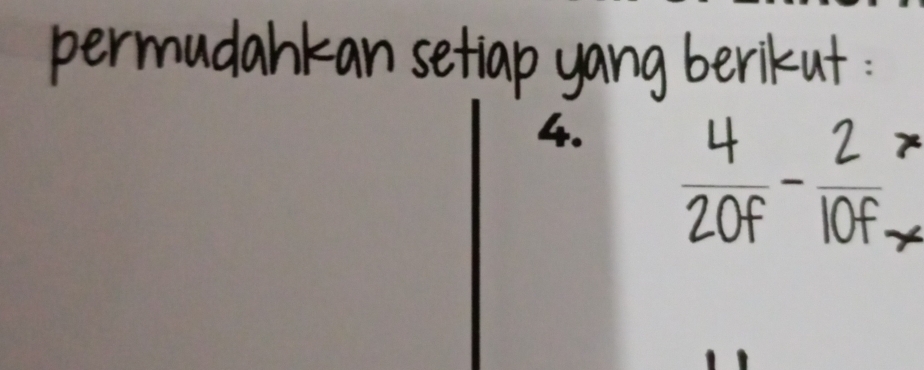 permudahkan setiap yang berikut :
4. 4/20f - 2/10f × ×